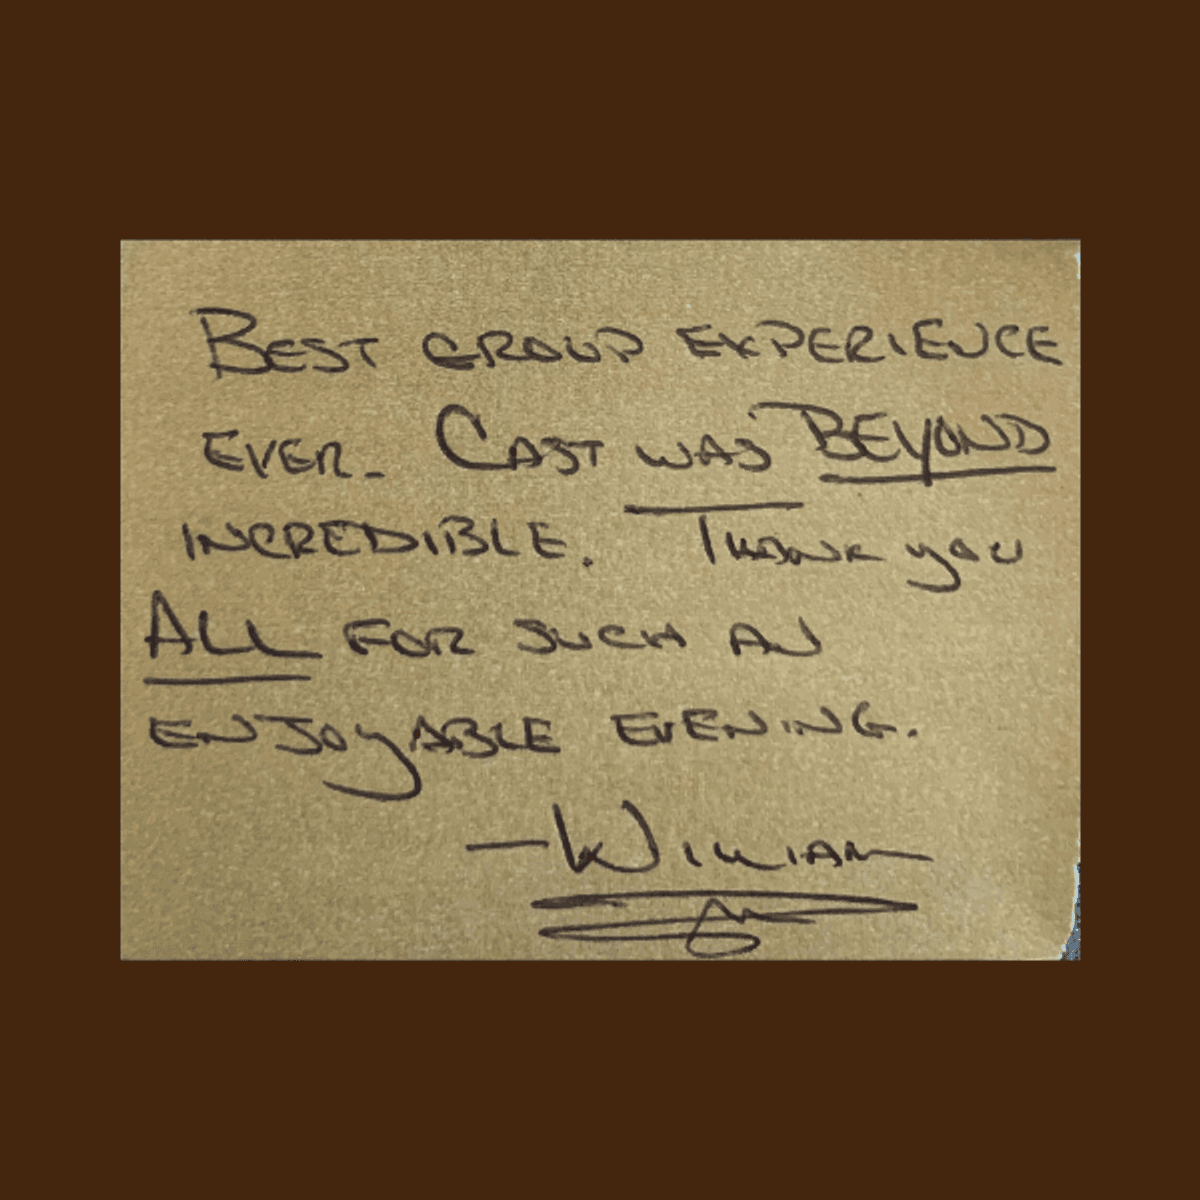 BEST GROUP EXPERIENCE
EVER. CAST WAS BEYOND
INCREDIBLE. THANK YOU
ALL FOR SUCH AN
ENJOYABLE EVENING.
—WILLIAM